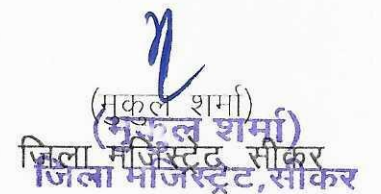 (मुकुल शर्मा)
(मुकुल शर्मा)
जिला मजिस्ट्रेट, सीकर
जिला मजिस्ट्रेट सीकर